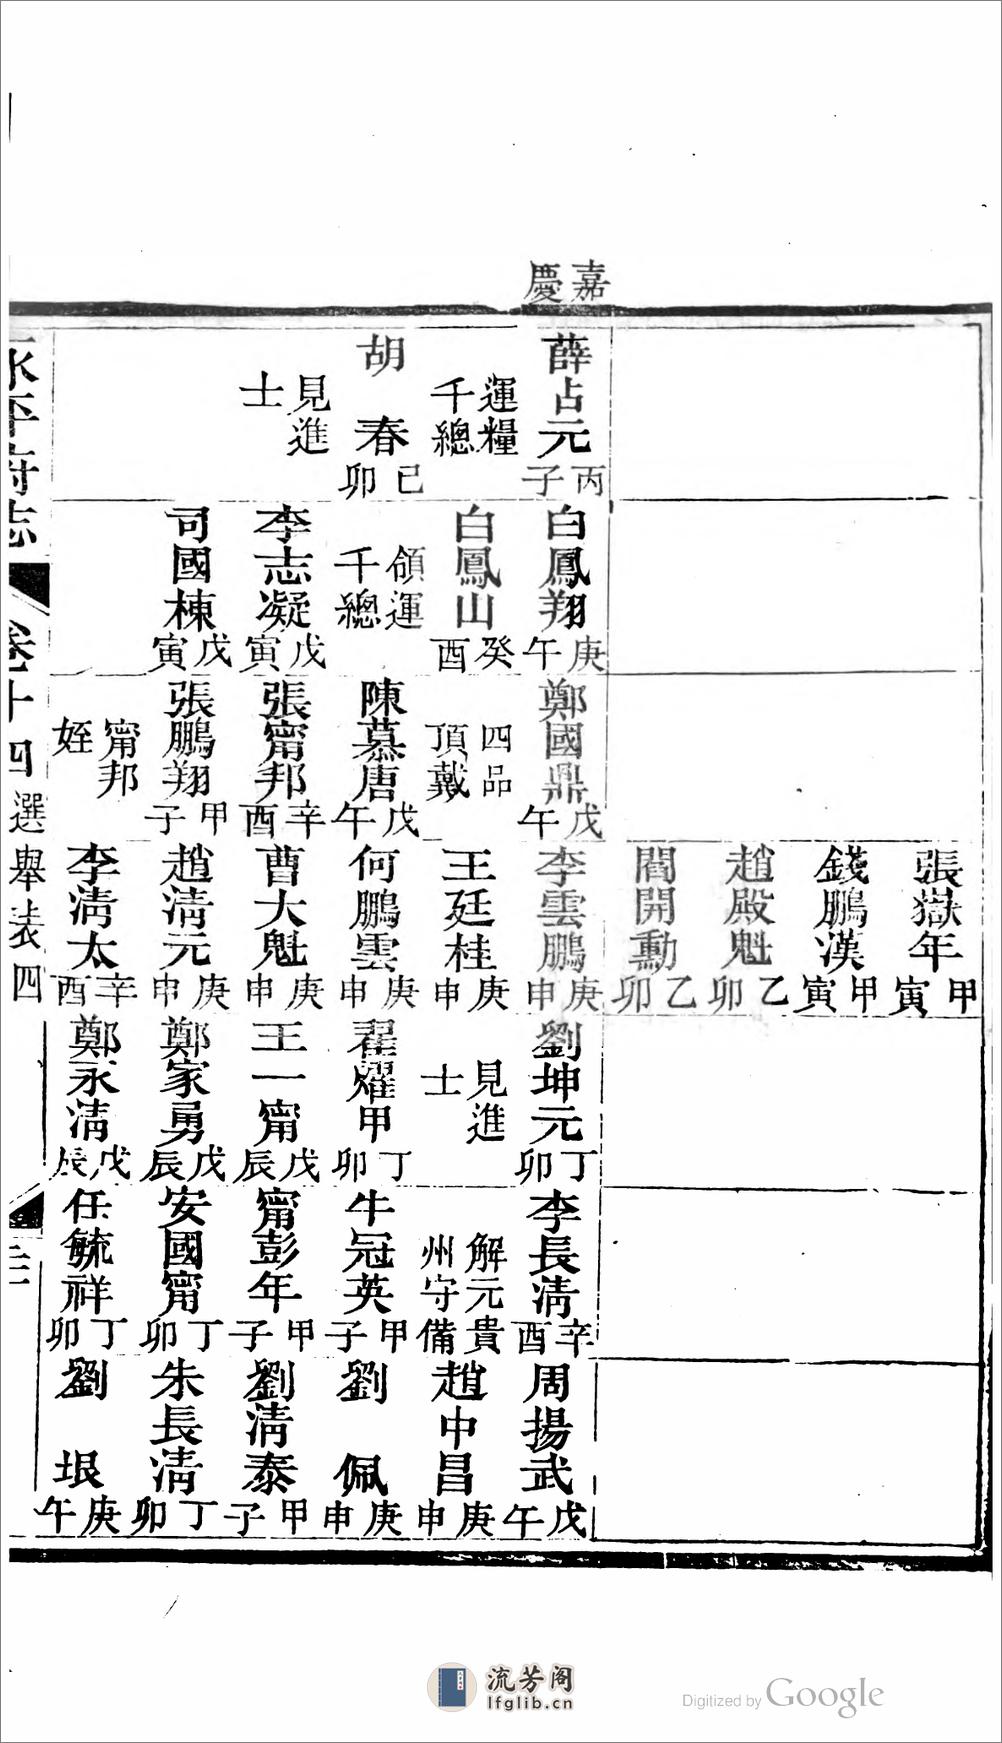 嘉慶
薛占元丙子
運糧
千總
胡春己卯
見進
士
白鳳翔庚午
白鳳山癸酉
領運
千總
李志凝戊寅
司國棟戊寅
鄭國鼎戊午
四品
頂戴
陳慕唐戊午
張甯邦辛酉
張鵬翔甲子
甯邦
姪
張嶽年甲寅
錢鵬漢甲寅
趙殿魁乙卯
閻開勳乙卯
李雲鵬庚申
王廷桂庚申
何鵬雲庚申
曹大魁庚申
趙清元庚申
李清太辛酉
劉坤元丁卯
見進
士
翟燿甲丁卯
王一甯戊辰
鄭家勇戊辰
鄭永清戊辰
李長清辛酉
解元貴
州守備
牛冠英甲子
甯彭年甲子
安國甯丁卯
任毓祥丁卯
周揚武戊午
趙中昌庚申
劉佩庚申
劉清泰甲子
朱長清丁卯
劉垠庚午
永平府志
卷十四
選舉表四
流芳阁
lfglib.cn
Digitized by Google